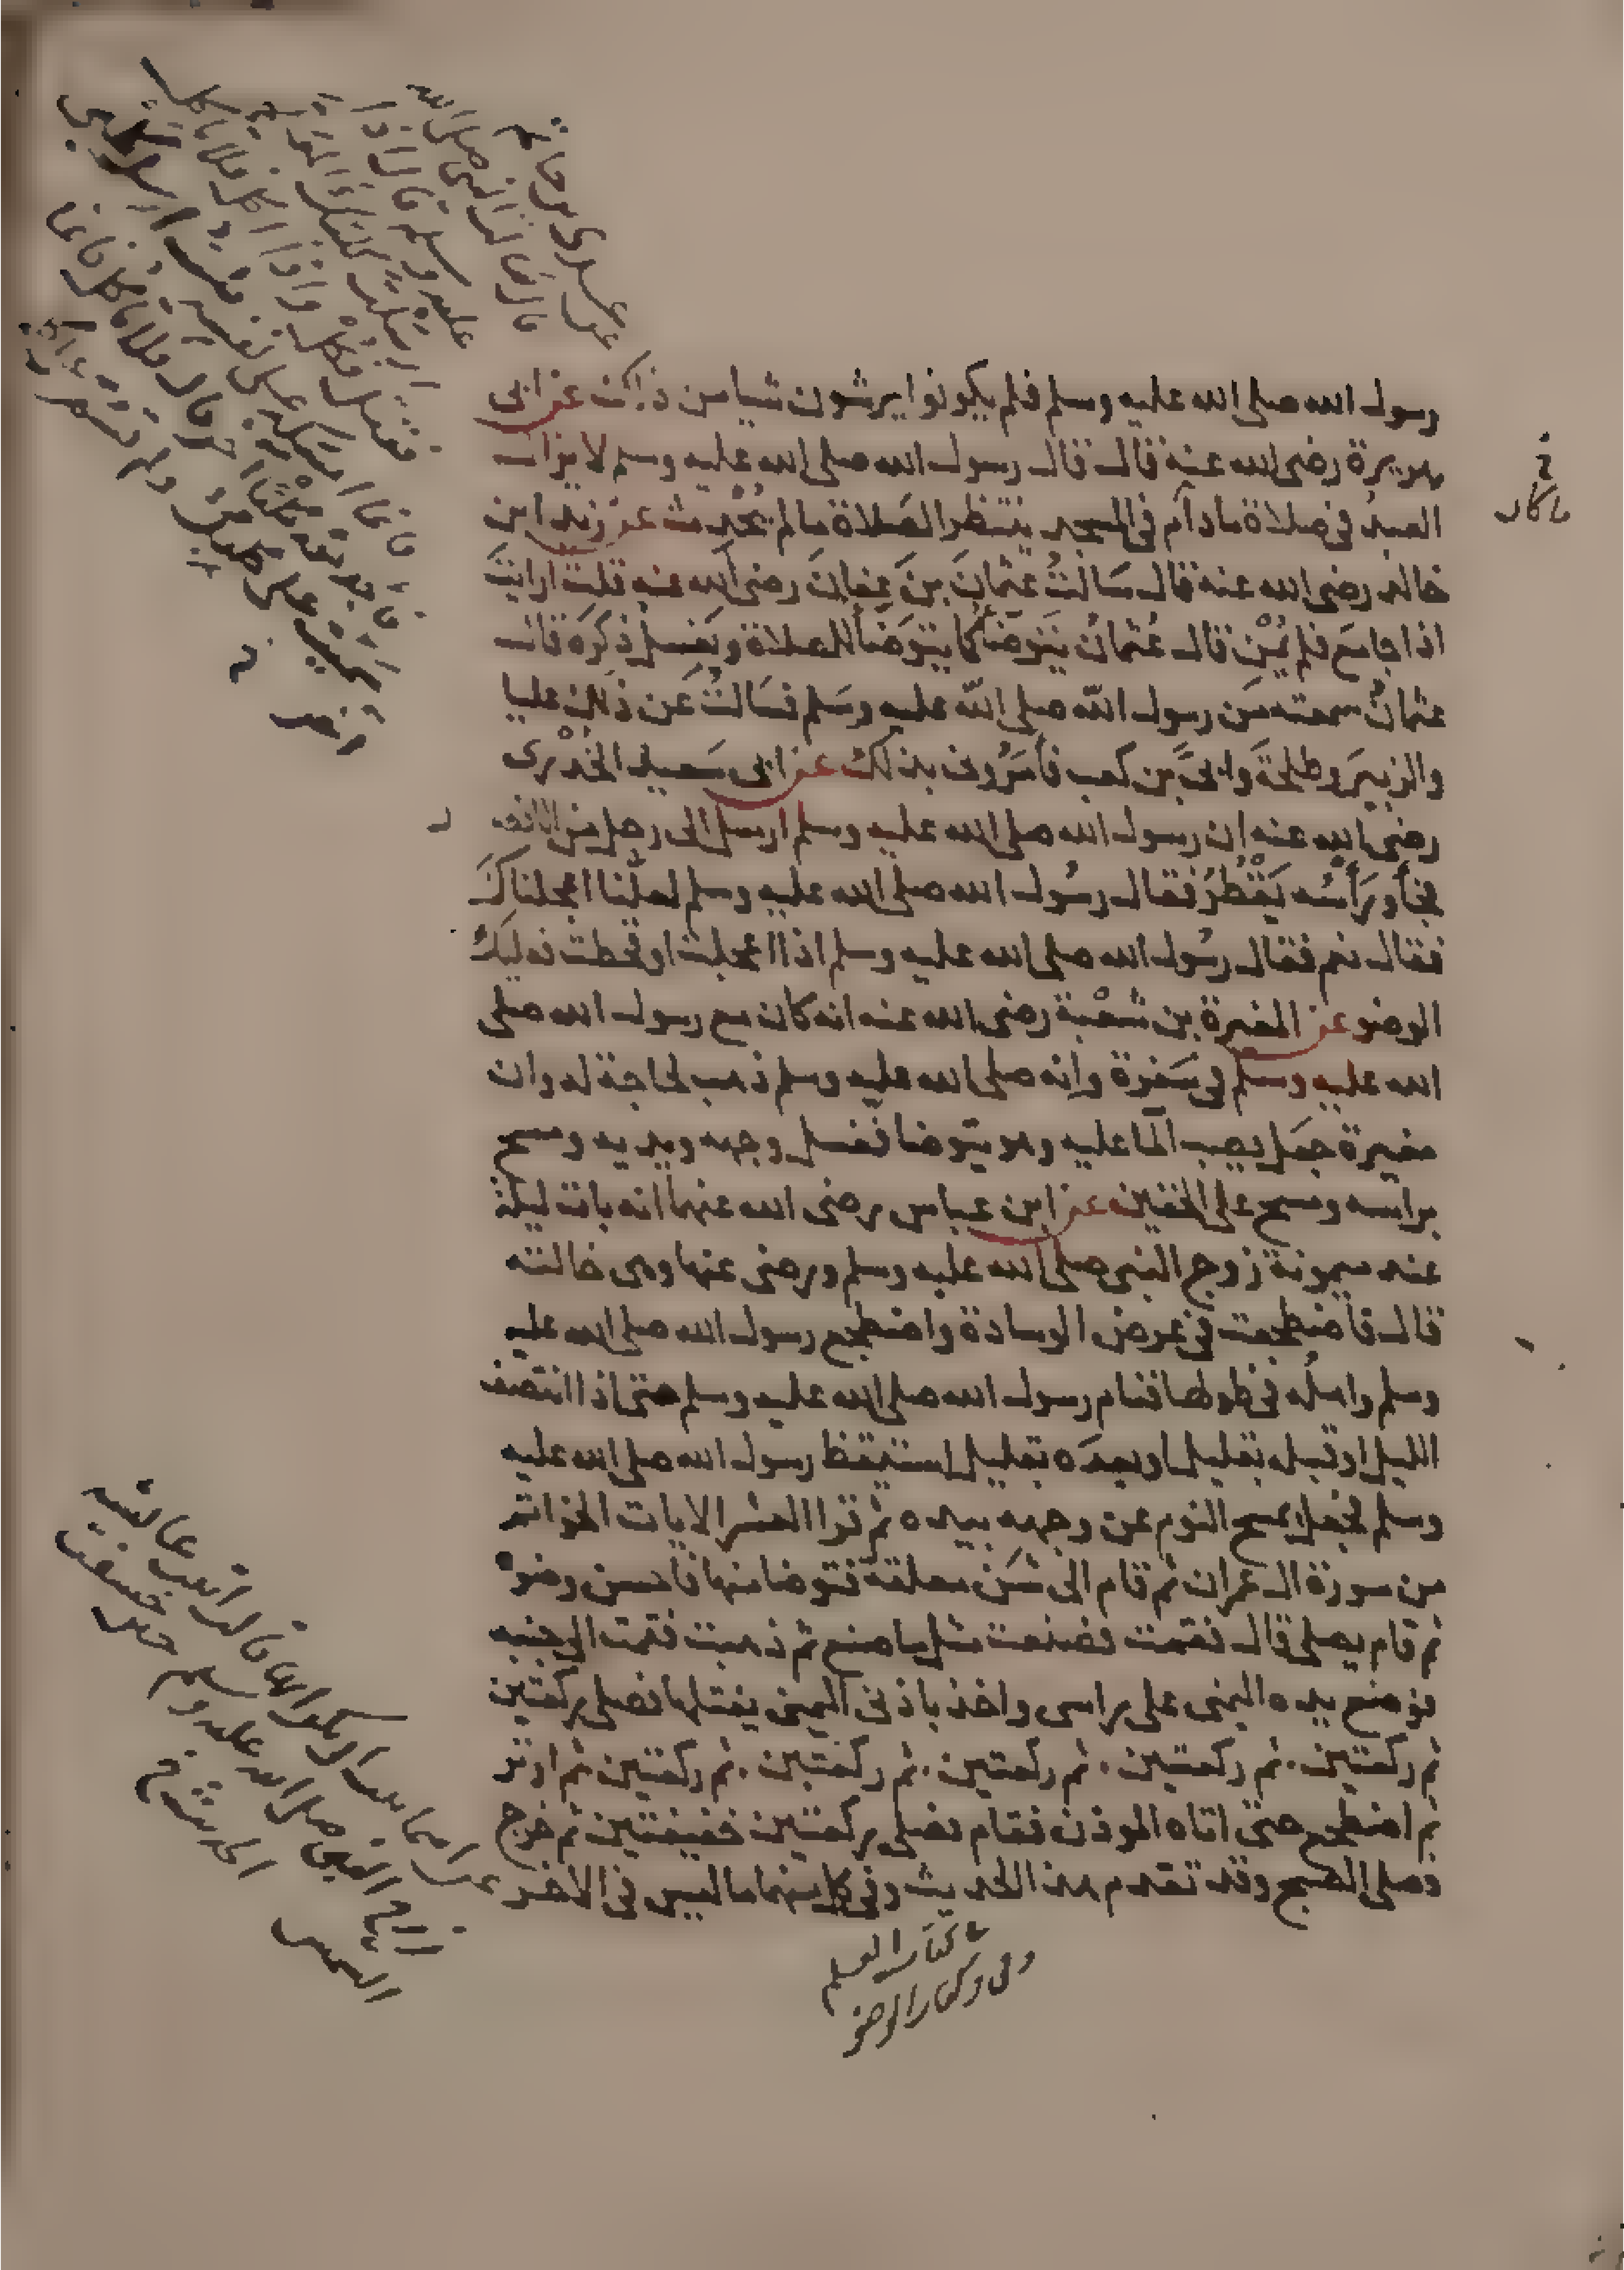 رسول الله صلى الله عليه وسلم فلم يكونوا يرشون شيا من ذلك عن ابى
هريرة رضى الله عنه قال قال رسول الله صلى الله عليه وسلم لا يزال
العبد في صلاة ما دام في المسجد ينتظر الصلاة ما لم يحدث عن زيد ابن
خالد رضى الله عنه قال سالت عثمان بن عفان رضى الله عنه قلت ارايت
اذا جامع فلم يمن قال عثمان يتوضأ كما يتوضأ للصلاة ويغسل ذكره قال
عثمان سمعته من رسول الله صلى الله عليه وسلم فسالت عن ذلك عليا
والزبير وطلحة وابى بن كعب فأمروه بذلك عن ابى سعيد الخدرى
رضى الله عنه ان رسول الله صلى الله عليه وسلم ارسل الى رجل من الانصا
ر
فجأ ورأسه يقطر فقال رسول الله صلى الله عليه وسلم لعلنا اعجلناك
فقال نعم فقال رسول الله صلى الله عليه وسلم اذا اعجلت او قحطت فعليك
الوضو عن المغيرة بن شعبة رضى الله عنه انه كان مع رسول الله صلى
الله عليه وسلم في سفرة وانه صلى الله عليه وسلم ذهب لحاجة له وان
مغيرة جعل يصب الما عليه وهو يتوضا فغسل وجهه ويديه ومسح
براسه ومسح على الخفين عن ابن عباس رضى الله عنهما انه بات ليلة
عند ميمونة زوج النبى صلى الله عليه وسلم ورضى عنها وهى خالته
قال فاضطجعت في عرض الوسادة واضطجع رسول الله صلى الله عليه
وسلم واهله في طولها فنام رسول الله صلى الله عليه وسلم حتى اذا انتصف
الليل او قبله بقليل او بعده بقليل استيقظ رسول الله صلى الله عليه
وسلم فجعل يمسح النوم عن وجهه بيده ثم قرا العشر الايات الخواتم
من سورة ال عمران ثم قام الى شن معلقة فتوضا منها فاحسن وضوه
ثم قام يصلى قال فقمت فصنعت مثل ما صنع ثم ذهبت فقمت الى جنبه
فوضع يده اليمنى على راسى واخذ باذنى اليمنى يفتلها فصلى ركعتين
ثم ركعتين ثم ركعتين ثم ركعتين ثم ركعتين ثم ركعتين ثم اوتر
ثم اضطجع حتى اتاه الموذن فقام فصلى ركعتين خفيفتين ثم خرج
فصلى الصبح وقد تقدم هذا الحديث وفي كل منهما ما ليس في الاخر
ما كان
عن عدى بن حاتم
قال سالت النبى صلى الله
عليه وسلم قال اذا
ارسلت كلبك المعلم
فقتل فكل واذا اكل فلا تاكل
فانما امسكه على نفسه قلت ارسل كلبى
فاجد معه كلبا اخر قال فلا تاكل فانما
سميت على كلبك ولم تسم على
اخر
عن اسما بنت ابى بكر انها قالت اتيت عائشة
زوج النبى صلى الله عليه وسلم حين خسفت
الشمس
الحديث